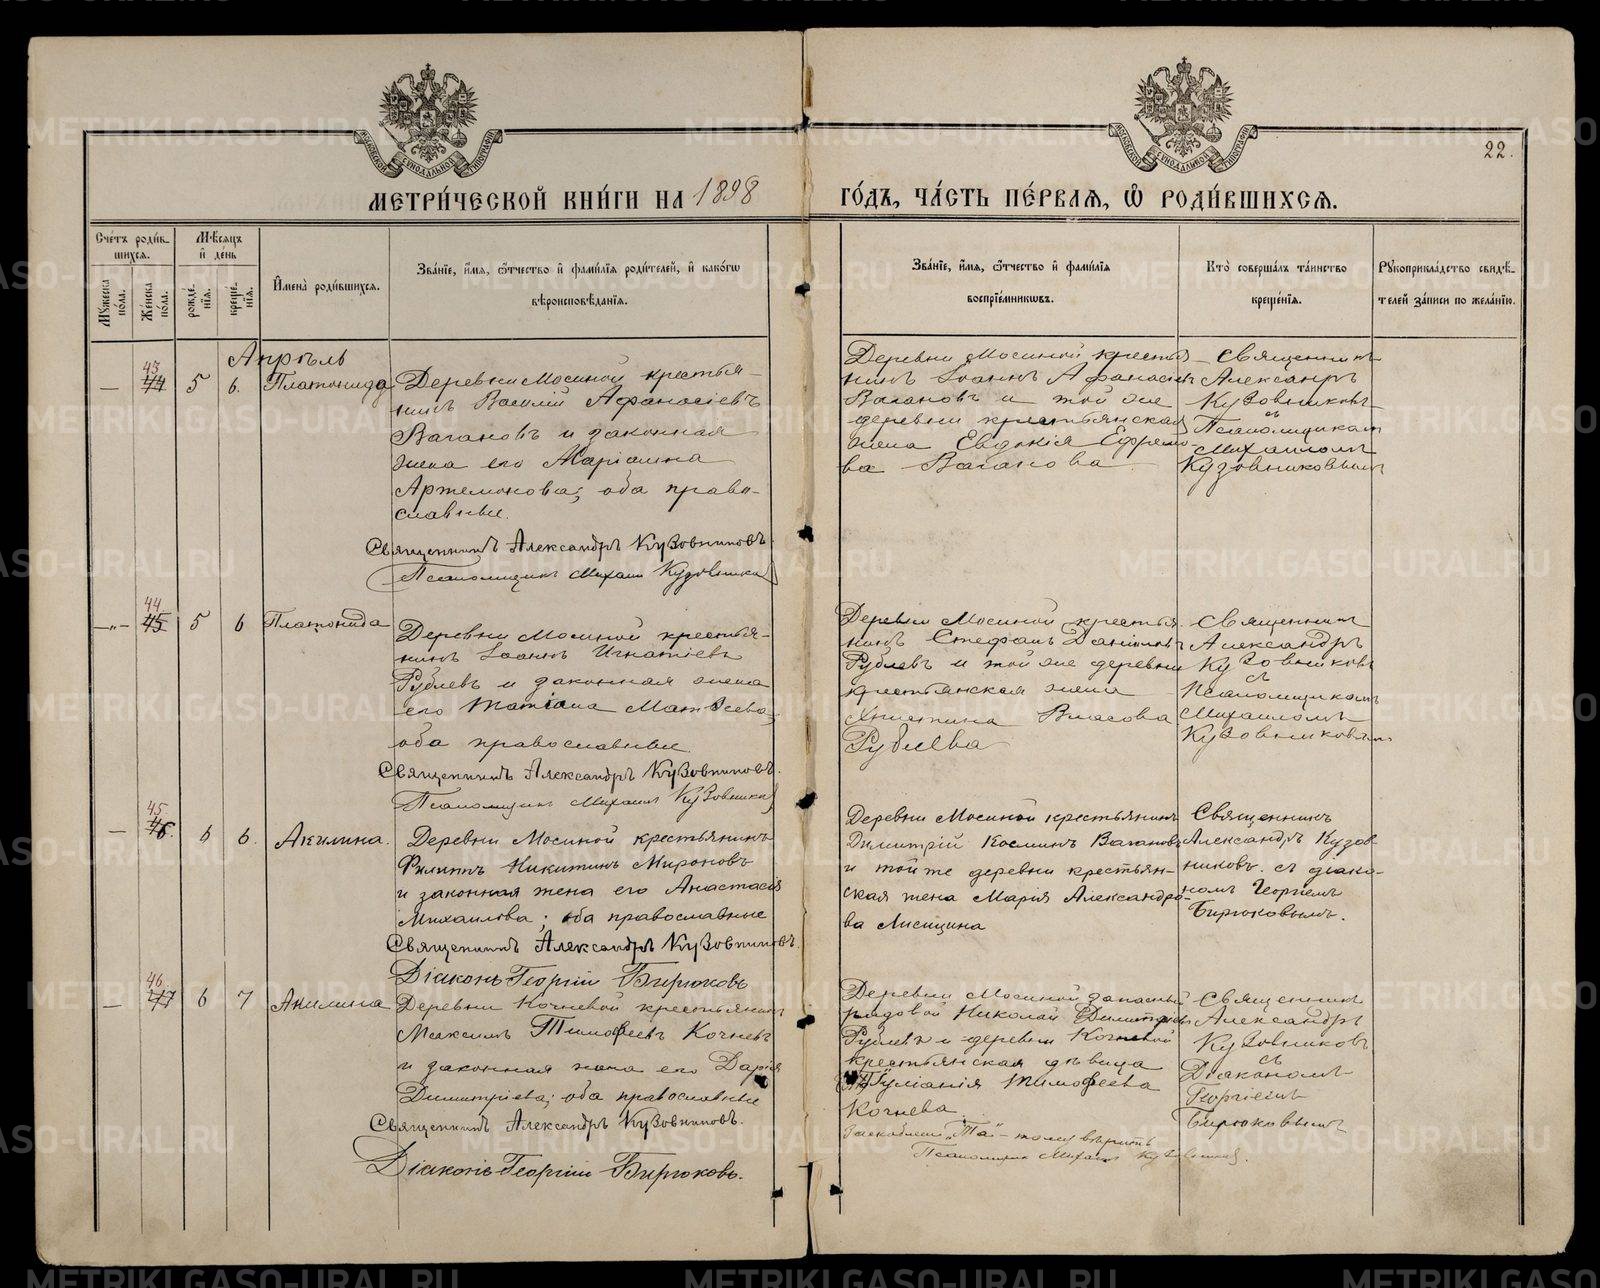 МЕТРИ́ЧЕСКОЙ КНИ́ГИ НА 1898
ГО́ДЪ, ЧА́СТЬ ПЕ́РВАѦ, Ѿ РОДИ́ВШИХСѦ.
22.
Сче́тъ роди́в-
шихсѧ.
Мѣ́сѧцъ
и҆ де́нь
Му́жеска
по́ла.
Же́нска
по́ла.
рожде́-
нїѧ.
креще́-
нїѧ.
И҆мена̀ роди́вшихсѧ.
Зва́нїе, и҆́мѧ, ѻ҆́тчество и҆ фами́лїѧ роди́телей, и҆ како́гѡ
вѣроисповѣ́данїѧ.
Зва́нїе, и҆́мѧ, ѻ҆́тчество и҆ фами́лїѧ
воспрїе́мниковъ.
Кто̀ соверша́лъ та́инство
креще́нїѧ.
Рꙋкоприкла́дство свидѣ́-
телей за́писи по жела́нїю.
Апрѣль
43
— 44 5 6. Платонида
Деревни Мосиной крестья-
нинъ Василій Афанасіевъ
Вагановъ и законная
жена его Маріамна
Артемонова; оба право-
славные.
Священникъ Александръ Кузовниковъ
Псаломщикъ Михаилъ Кузовников
Деревни Мосиной крестья-
нинъ Іоаннъ Афанасіевъ
Вагановъ и той же
деревни крестьянская
жена Евдокія Ефремо-
ва Ваганова
Священникъ
Александръ
Кузовниковъ
съ
Псаломщикомъ
Михаиломъ
Кузовниковымъ
44
—„— 45 5 6 Платонида
Деревни Мосиной крестья-
нинъ Іоаннъ Игнатіевъ
Рублевъ и законная жена
его Татіана Матѳеева,
оба православные
Священникъ Александръ Кузовниковъ.
Псаломщикъ Михаилъ Кузовников
Деревни Мосиной крестья-
нинъ Стефанъ Даніиловъ
Рублевъ и той же деревни
крестьянская жена
Христина Власова
Рублева
Священникъ
Александръ
Кузовниковъ
съ
Псаломщикомъ
Михаиломъ
Кузовниковымъ
45
— 46. 6 6. Акилина.
Деревни Мосиной крестьянинъ
Филиппъ Никитинъ Мироновъ
и законная жена его Анастасія
Михаилова; оба православные
Священникъ Александръ Кузовниковъ.
Діаконъ Георгій Бирюковъ
Деревни Мосиной крестьянинъ
Димитрій Космичъ Вагановъ
и той же деревни крестьян-
ская жена Марія Александро-
ва Лисицина
Священникъ
Александръ Кузов-
никовъ. съ діако-
номъ Георгіемъ
Бирюковымъ.
46
— 47 6 7 Акилина
Деревни Кочневой крестьянинъ
Максимъ Тимофеевъ Кочневъ
и законная жена его Дарія
Димитріева; оба православные
Священникъ Александръ Кузовниковъ.
Діаконъ Георгій Бирюковъ.
Деревни Мосиной запасный
рядовой Николай Димитріевъ
Рублевъ и деревни Кочневой
крестьянская дѣвица
Іуліанія Тимофеева
Кочнева.
„Та“ - тому вѣрить
Псаломщикъ Михаилъ Кузовников.
Священникъ
Александръ
Кузовниковъ
съ
Діакономъ
Георгіемъ
Бирюковымъ
METRIKI.GASO-URAL.RU